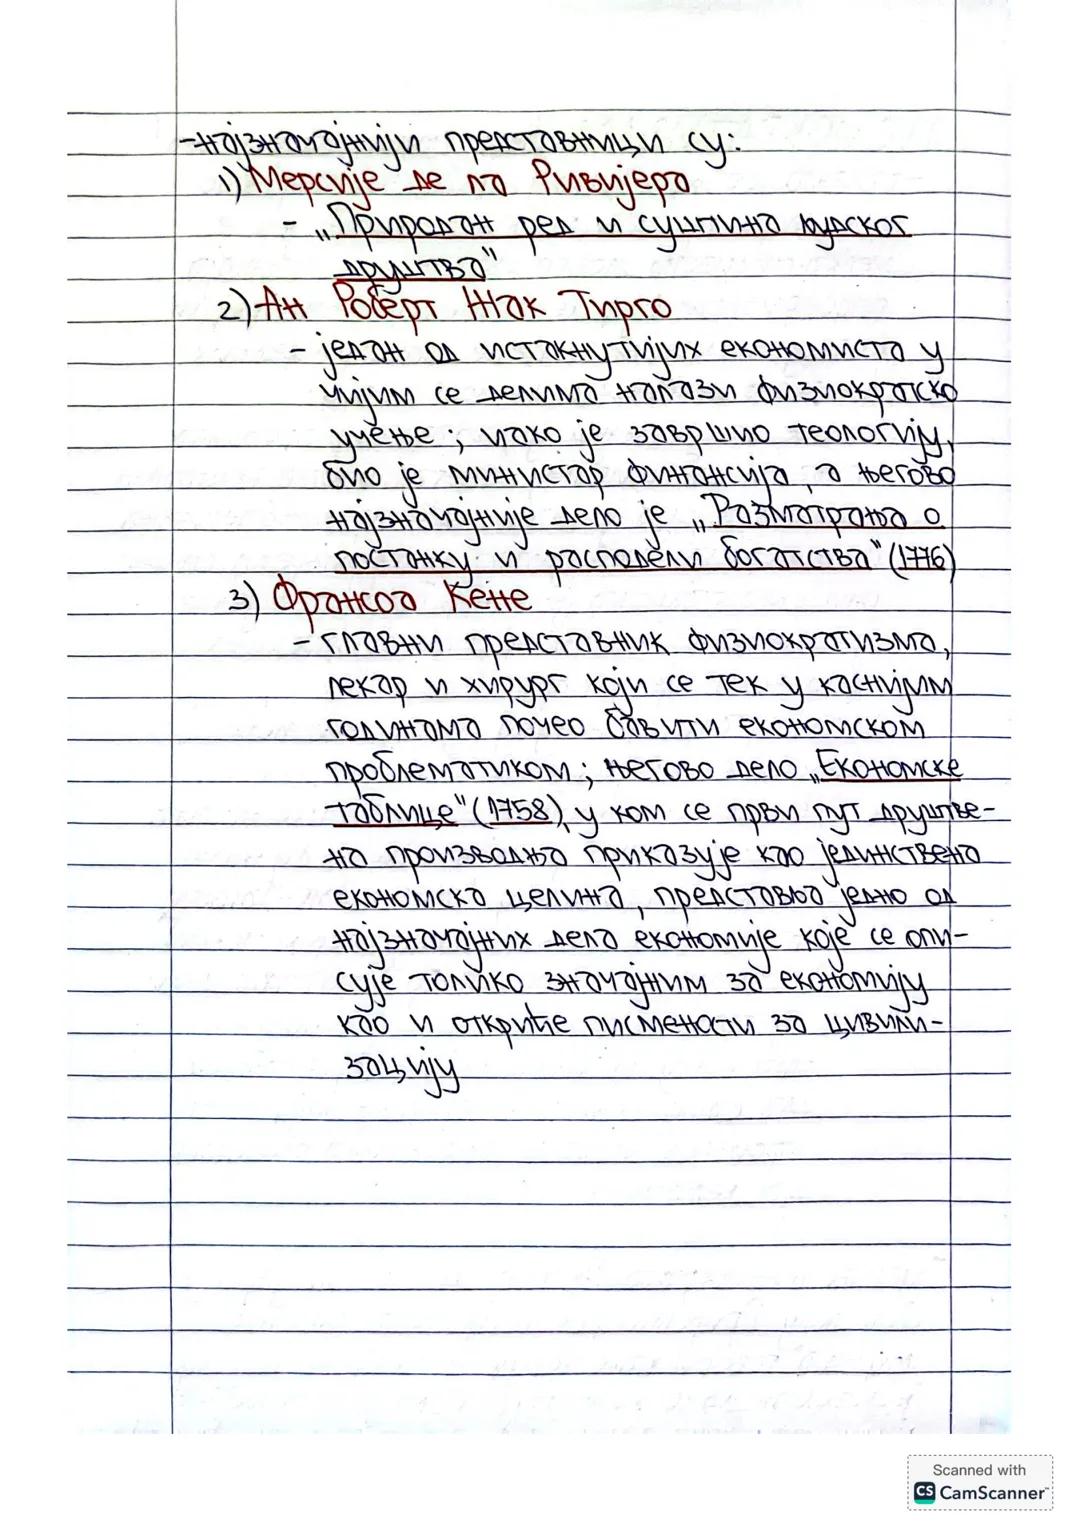 -најзначајнији представници су:
1) Мерсије де ла Ривијера
- „Природан ред и суштина људског
друштва"
2) Ан Роберт Жак Тирго
- један од истакнутијих економиста у
чијим се делима налази физиократско
учење; иако је завршио теологију,
био је министар финансија, а његово
најзначајније дело је „Разматрања о
постанку и расподели богатства" (1776)
3) Франсоа Кене
- главни представник физиократизма,
лекар и хирург који се тек у каснијим
годинама почео бавити економском
проблематиком; његово дело „Економске
таблице" (1758), у ком се први пут друштве-
на производња приказује као јединствена
економска целина, представља једно од
најзначајних дела економије које се опи-
сује толико значајним за економију
као и откриће писмености за цивили-
зацију
Scanned with
CS CamScanner